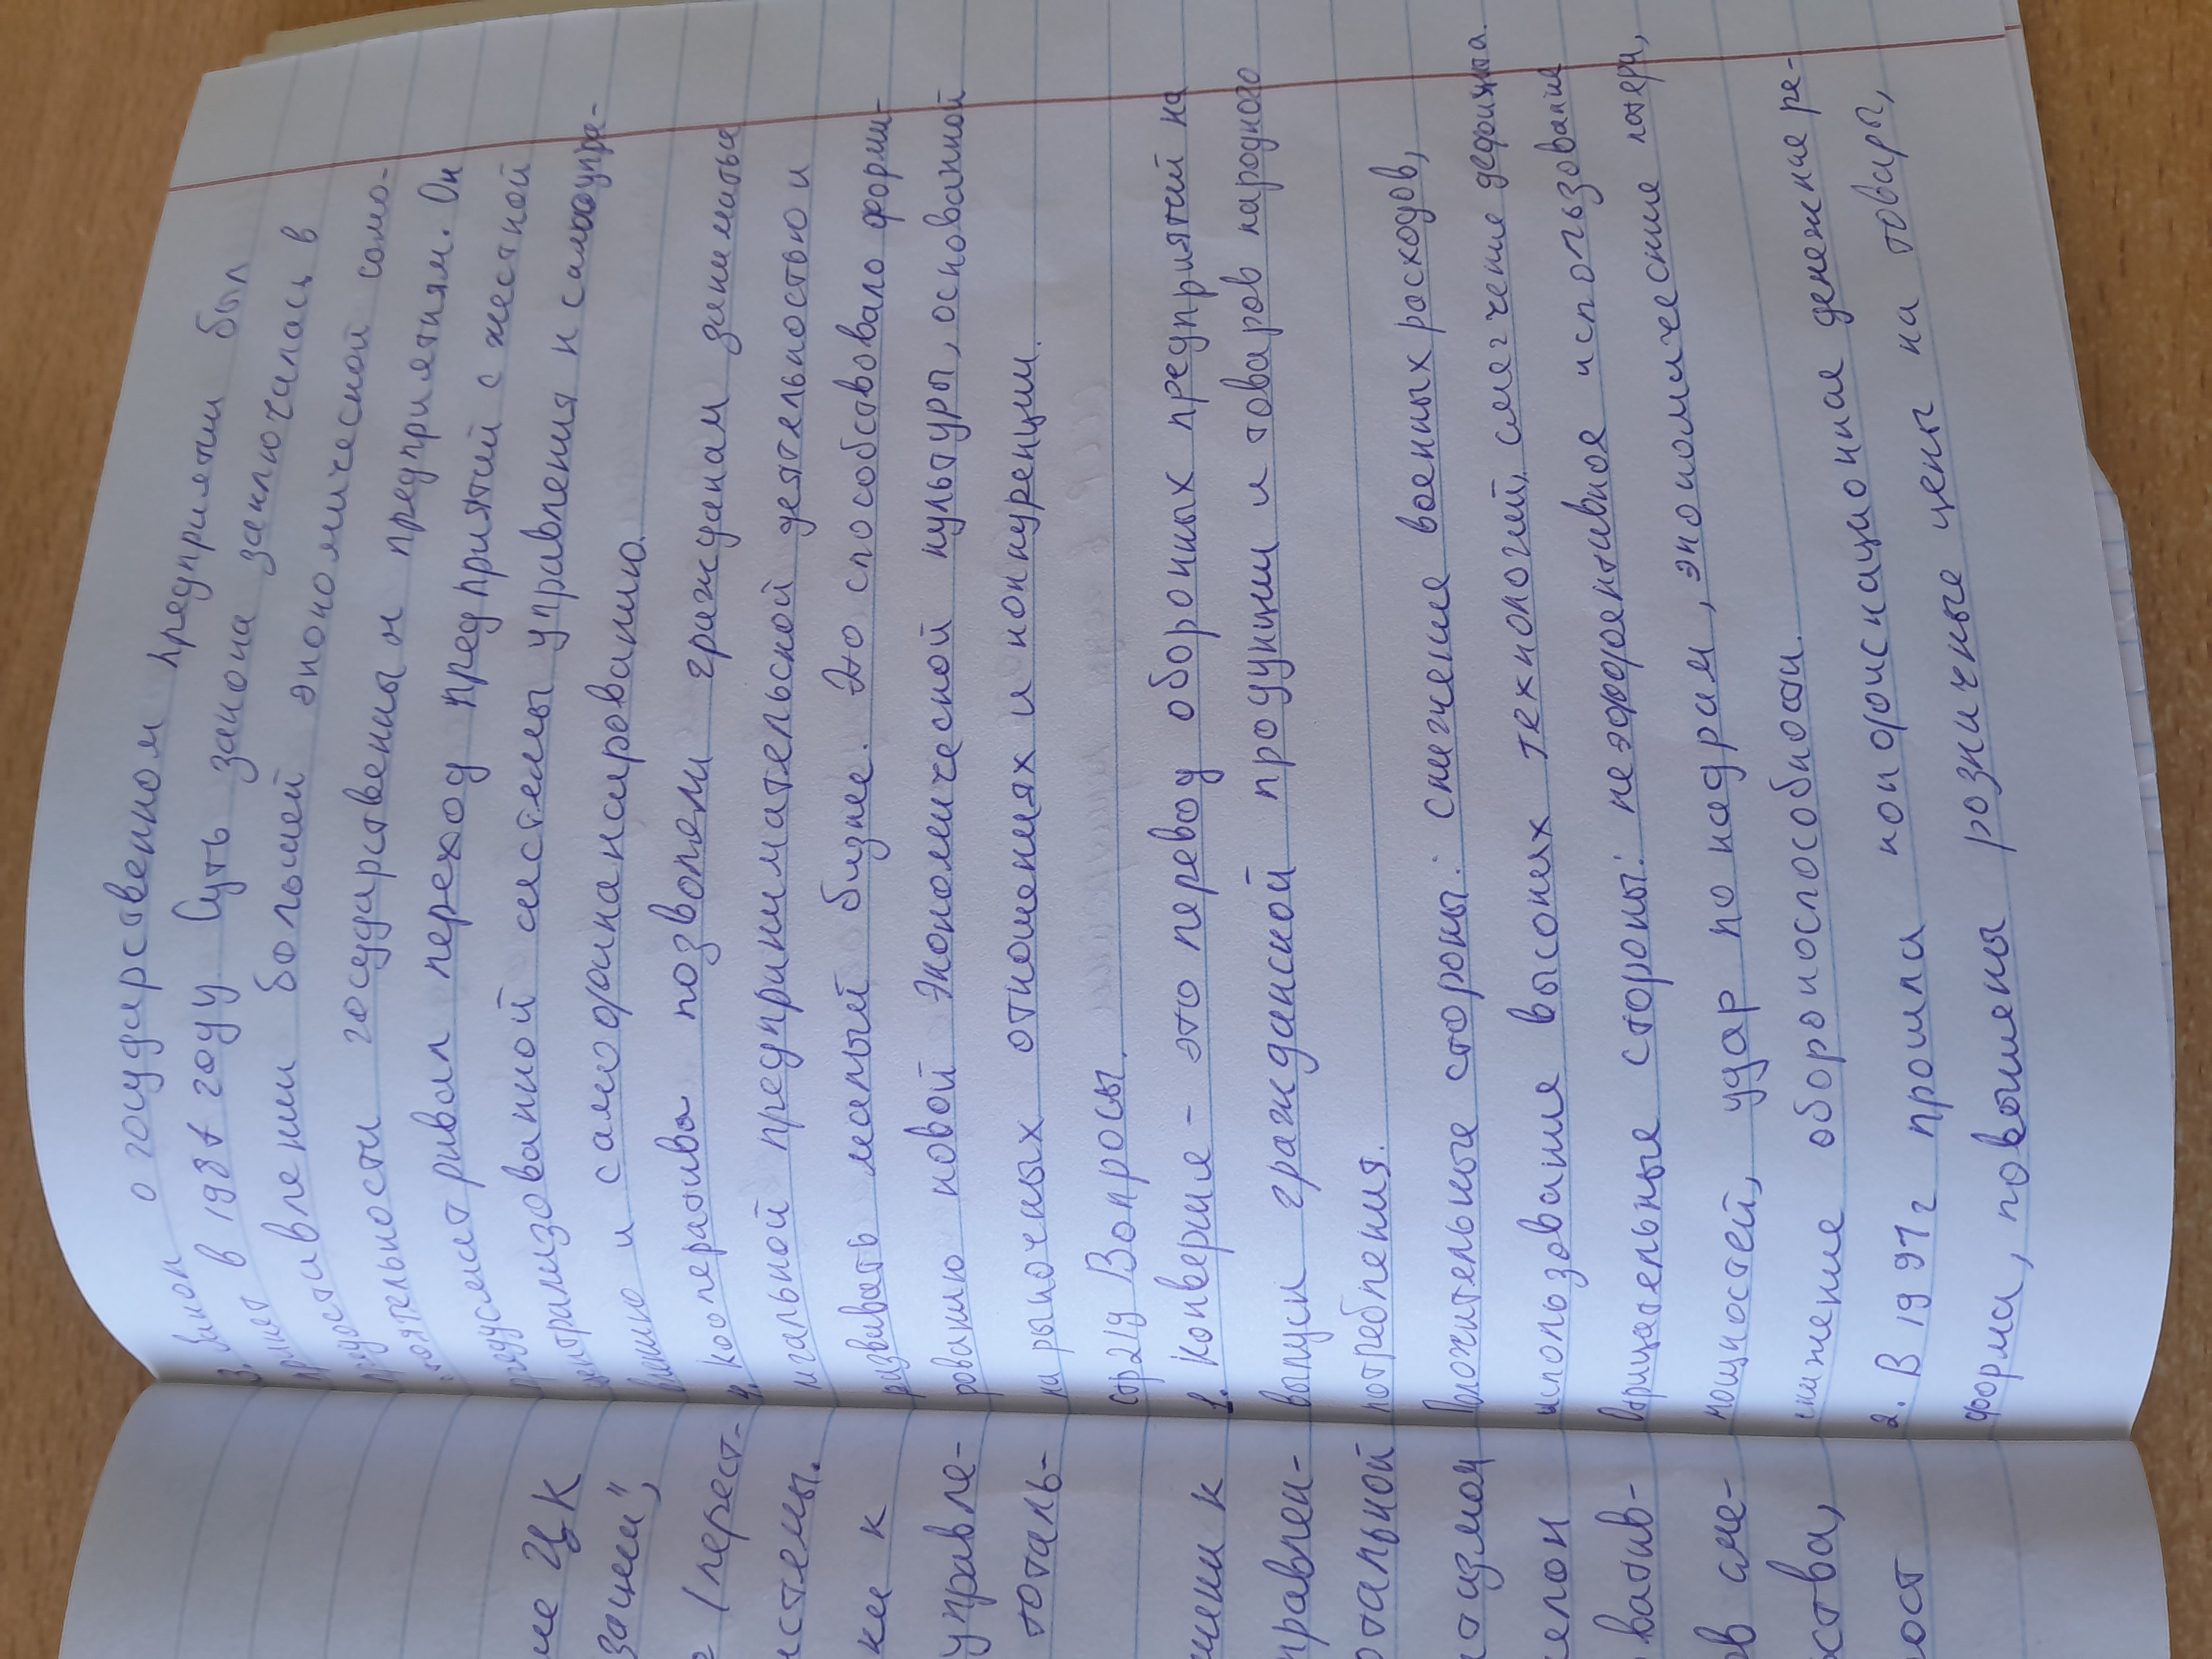 3. Закон о государственном предприятии был
принят в 1987 году Суть закона заключалась в
предоставлении большей экономической само-
стоятельности государственных предприятиям. Он
предусматривал переход предприятий с жесткой
централизованной системы управления к самоупра-
влению и самофинансированию.
4. Кооперативы позволяли гражданам заниматься
легальной предпринимательской деятельностью и
развивать малый бизнес. Это способствовало форми-
рованию новой экономической культуры, основанной
на рыночных отношениях и конкуренции.
стр 219 Вопросы.
1. Конверсия - это перевод оборонных предприятий на
выпуск гражданской продукции и товаров народного
потребления.
Положительные стороны: снижение военных расходов,
использование высоких технологий, смягчение дефицита.
Отрицательные стороны: неэффективное использование
мощностей, удар по кадрам, экономические потери,
снижение обороноспособности.
2. В 1991 г прошла конфискационная денежная ре-
форма, повышены розничные цены на товары,
ие ЦК
зации",
(перест-
истемы.
ки к
управле-
тоталь-
чики к
правлен-
отальной
измом
елон
ватив-
в сме-
ства,
ост